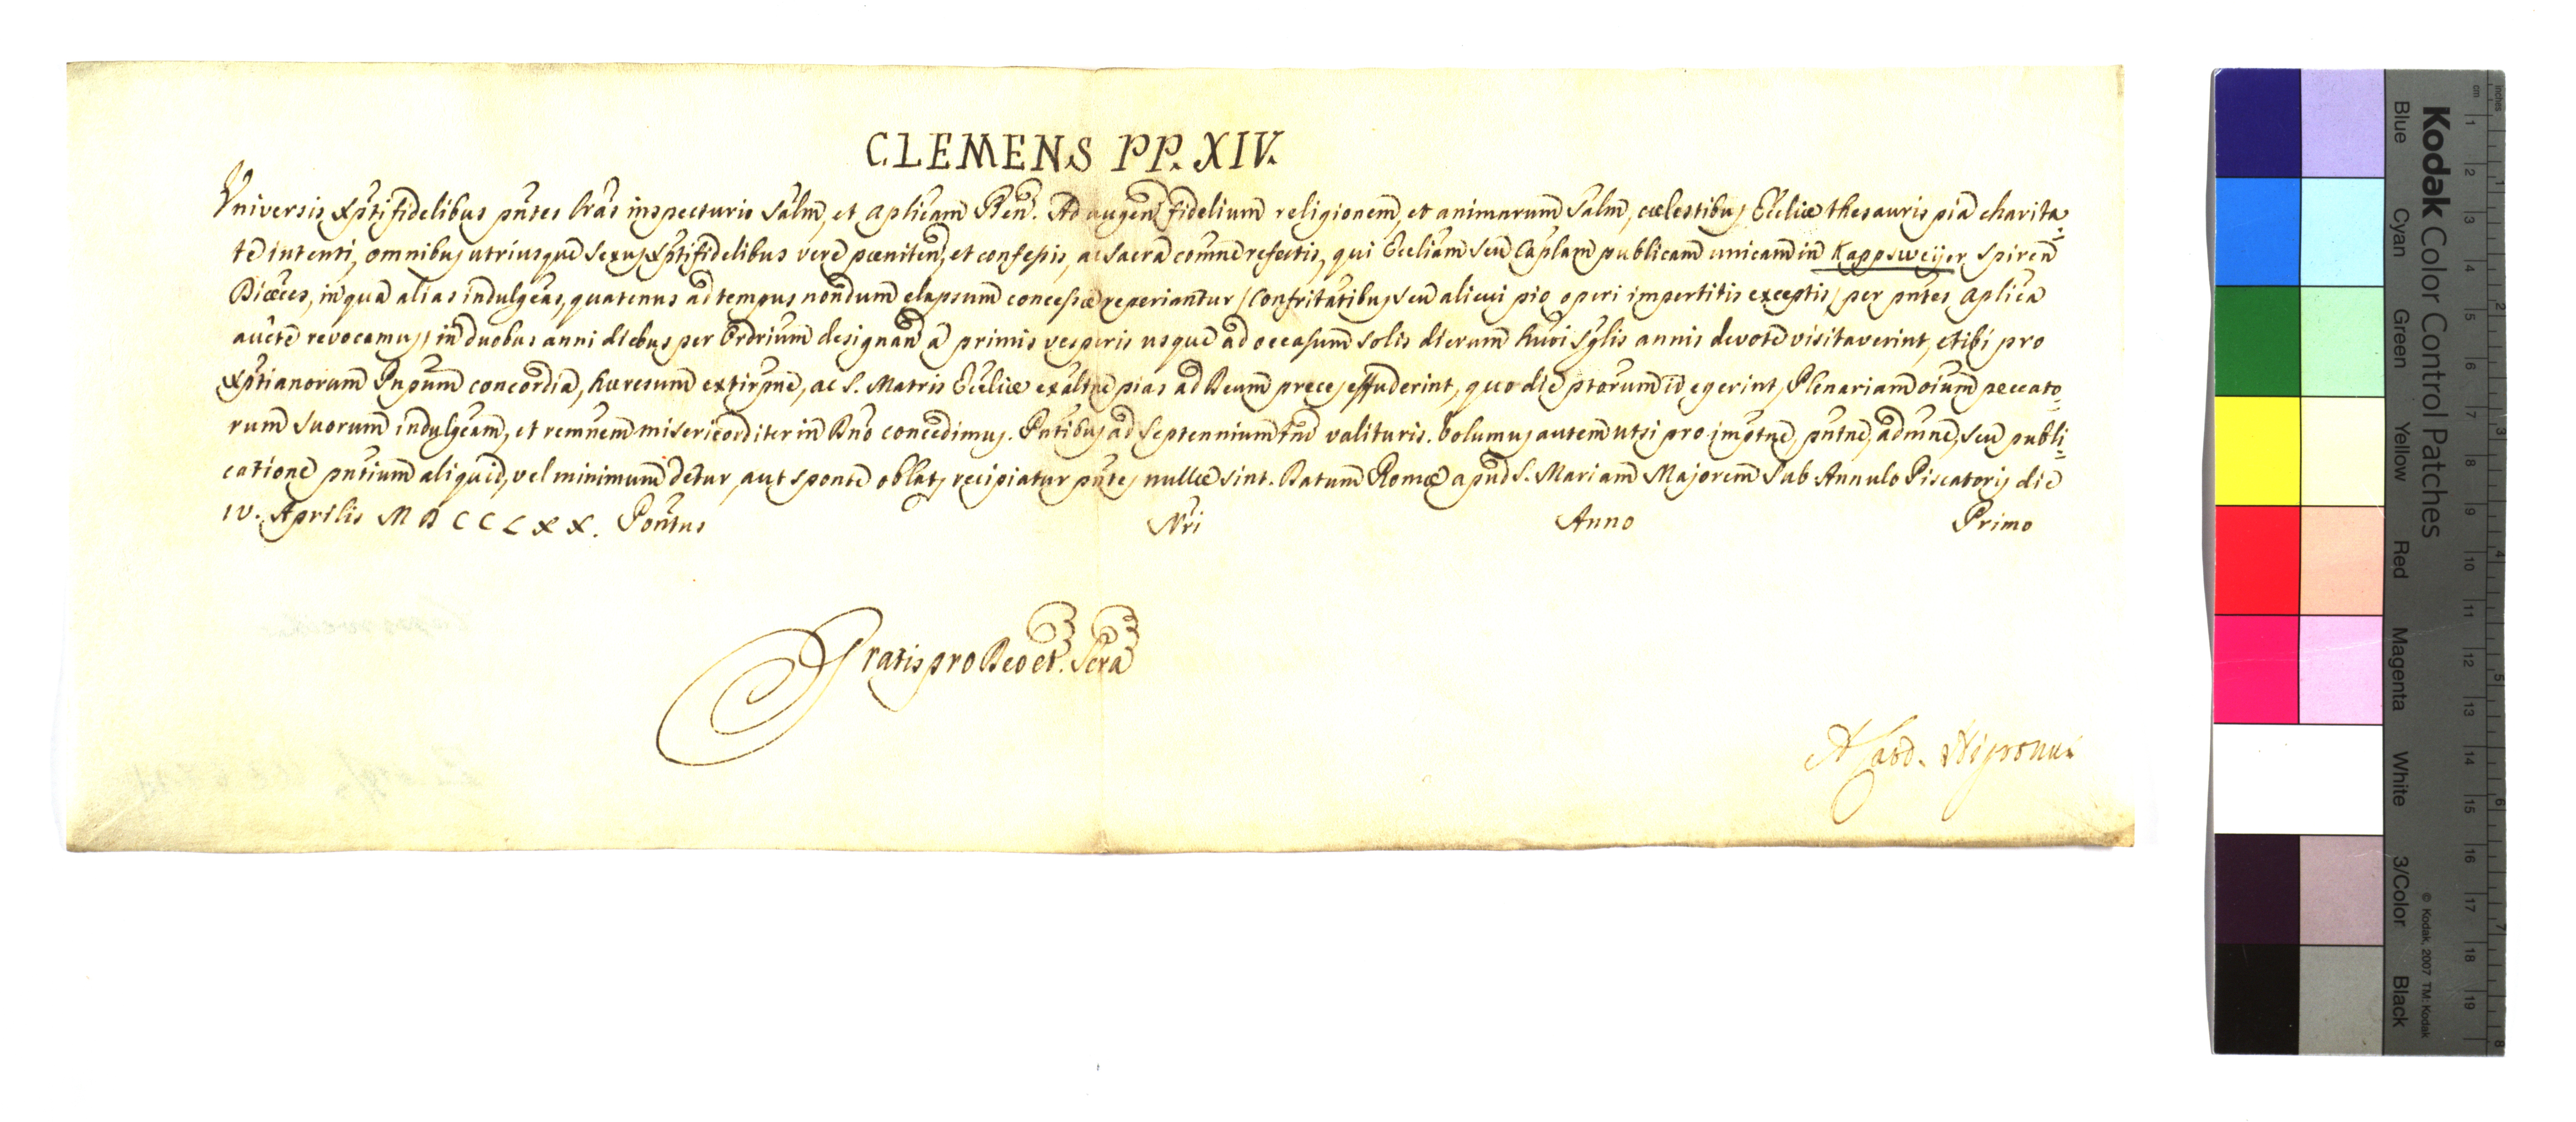 CLEMENS PP. XIV.
Universis Xpti fidelibus pntes lras inspecturis Salm, et aplicam Ben. Ad augen fidelium religionem, et animarum Salm, cœlestibus Ecclie thesauris pia charita=
te intenti, omnibus utriusque sexus Xptifidelibus vere pœniten, et confessis, ac Sacra comne refectis, qui Eccliam seu Caplam publicam unicam in Kappsweijer Spiren
Diœces, in qua alias indulgeas, quatenus ad tempus nondum elapsum concessæ reperiantur / Confritatibus seu alicui pio operi impertitis exceptis / per pntes aplica
aucte revocamus / in duobus anni diebus per Ordrium designan a primis vesperis usque ad occasum solis dierum huoi Sglis annis devote visitaverint, et ibi pro
Xptianorum Pnpum concordia, hæresum extirpne, ac S. Matris Ecclie exaltne pias ad Deum preces effuderint, quo die ptorum id egerint, Plenariam oium peccato=
rum suorum indulgeam, et remnem misericorditer in Dno concedimus. Pntibus ad Septennium tm valituris. Volumus autem ut si pro imptne, pntne, admne, seu publi=
catione pntium aliquid, vel minimum detur, aut sponte oblat, recipiatur pntes nullæ sint. Datum Romæ apud S. Mariam Majorem Sub Annulo Piscatoris die
IV. Aprilis MDCCLXX. Pontus Nri Anno Primo
Gratis pro Deo et Scra
A Card. Nigronus
Kodak Color Control Patches
Blue Cyan Green Yellow Red Magenta White 3/Color Black
© Kodak, 2007 TM: Kodak
cm 1 2 3 4 5 6 7 8 9 10 11 12 13 14 15 16 17 18 19
inches 1 2 3 4 5 6 7 8